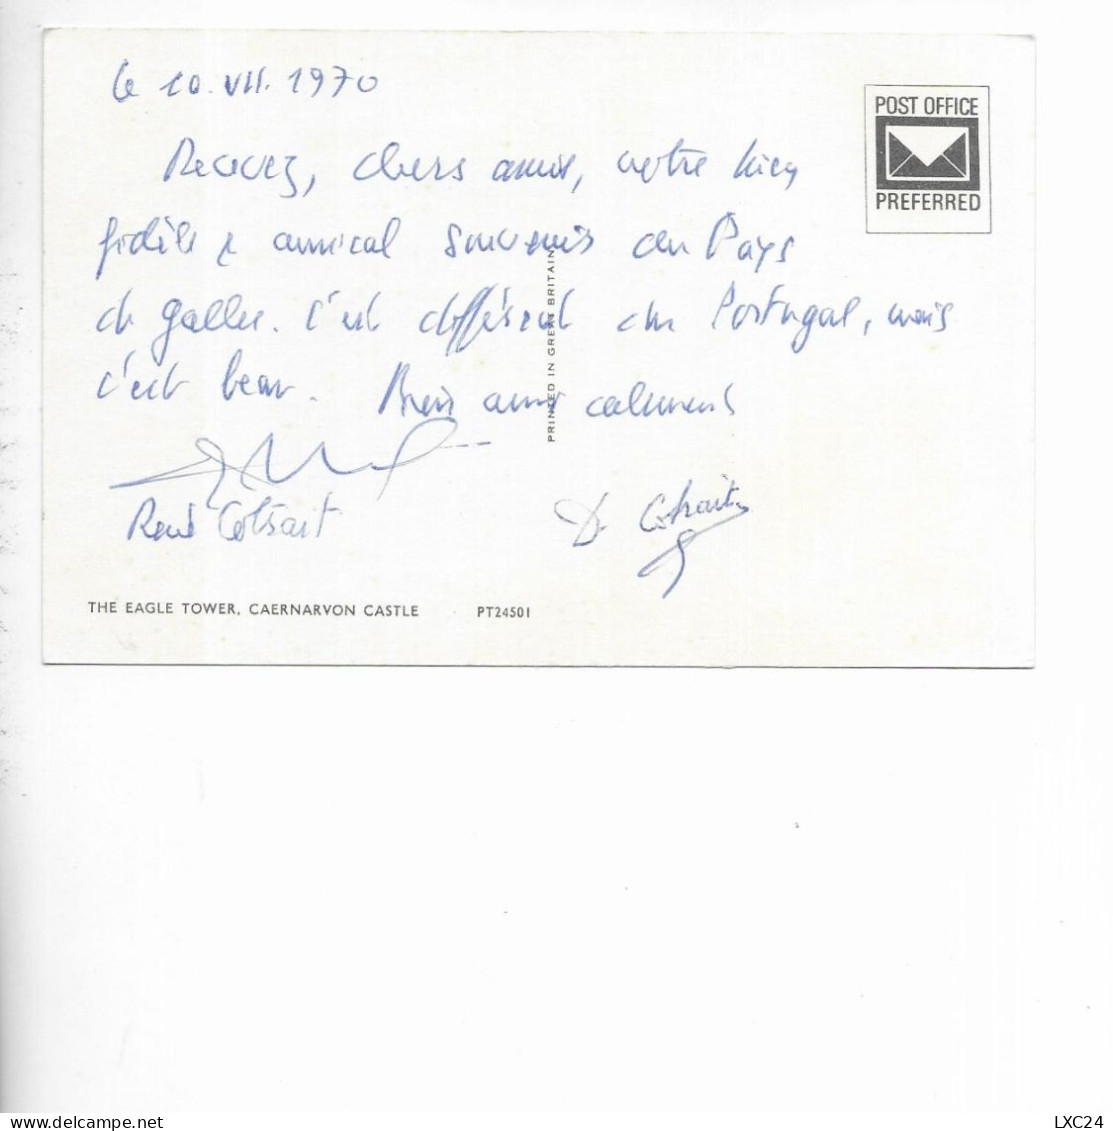 le 10.VII.1970
POST OFFICE
PREFERRED
Recevez, chers amis, notre bien
fidèle & amical souvenir du Pays
de Galles. C'est différent du Portugal, mais
c'est beau. Bien amicalement
PRINTED IN GREAT BRITAIN
René
D.
THE EAGLE TOWER, CAERNARVON CASTLE PT24501
delcampe.net
LXC24